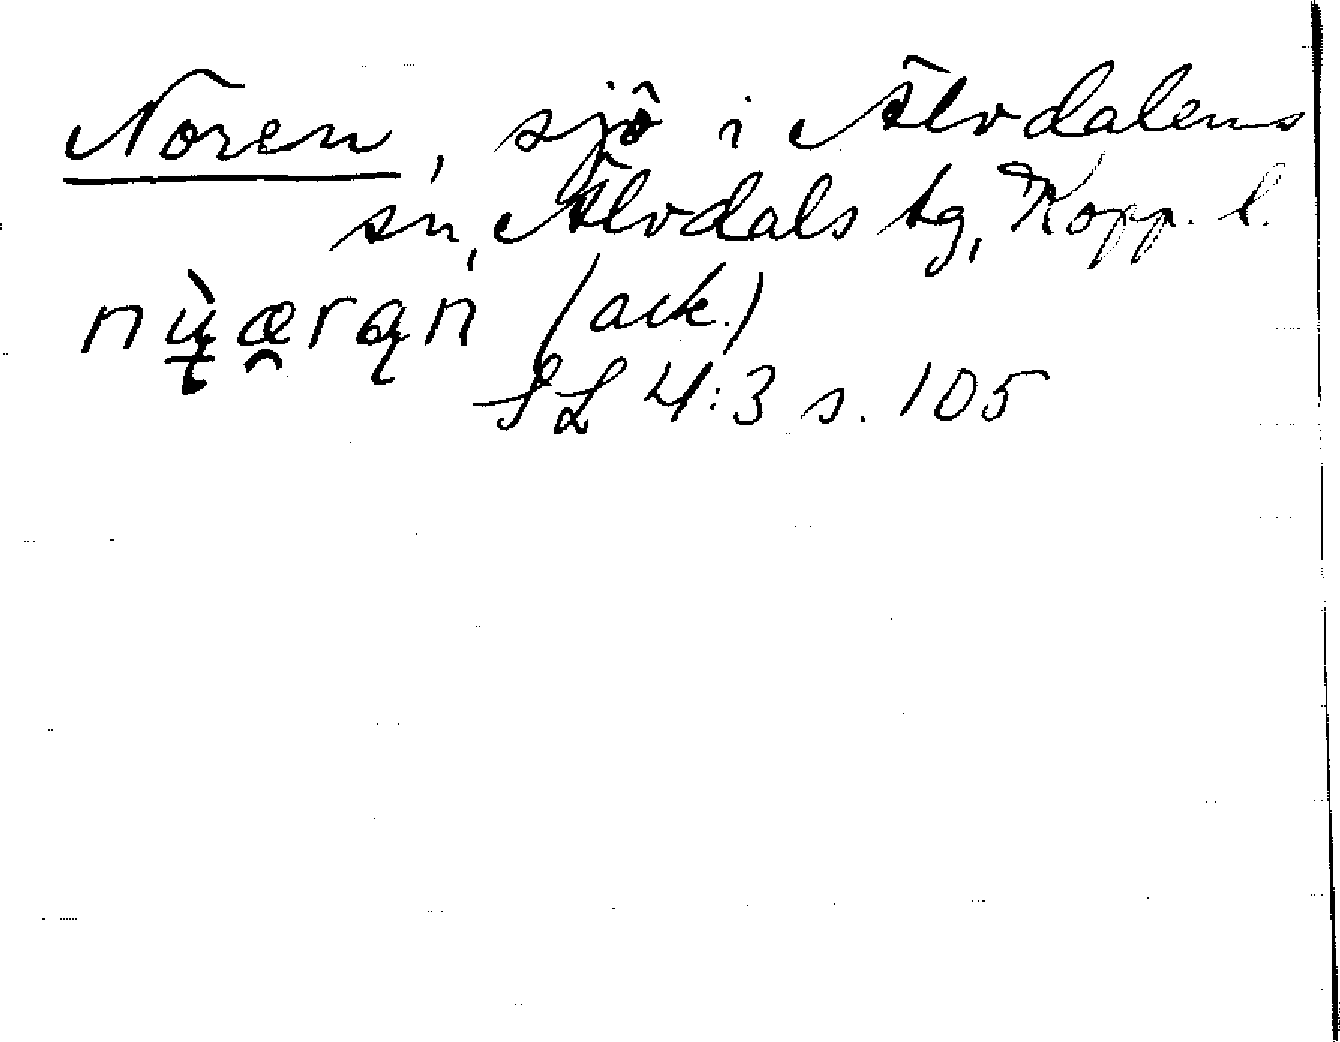 Noren, sjö i Älvdalens
sn, Älvdals tg, Kopp. l.
nų̀æ̯rąn (ack.)
SL 4:3 s. 105